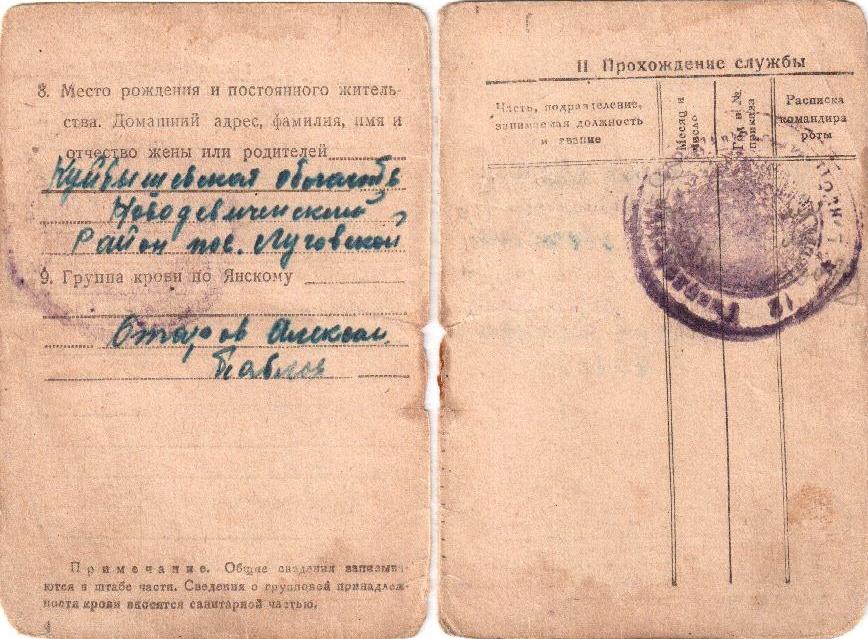 8. Место рождения и постоянного житель-
ства. Домашний адрес, фамилия, имя и
отчество жены или родителей
Куйбышевская область
Новодевиченский
Район пос. Луговской
9. Группа крови по Янскому
Алексан.
Павлов
Примечание. Общие сведения записыва-
ются в штабе части. Сведения о групповой принадлеж-
ности крови вносятся санитарной частью.
4
II Прохождение службы
Часть, подразделение,
занимаемая должность
и звание
Месяц и
число
Год и №
приказа
Расписка
командира
роты